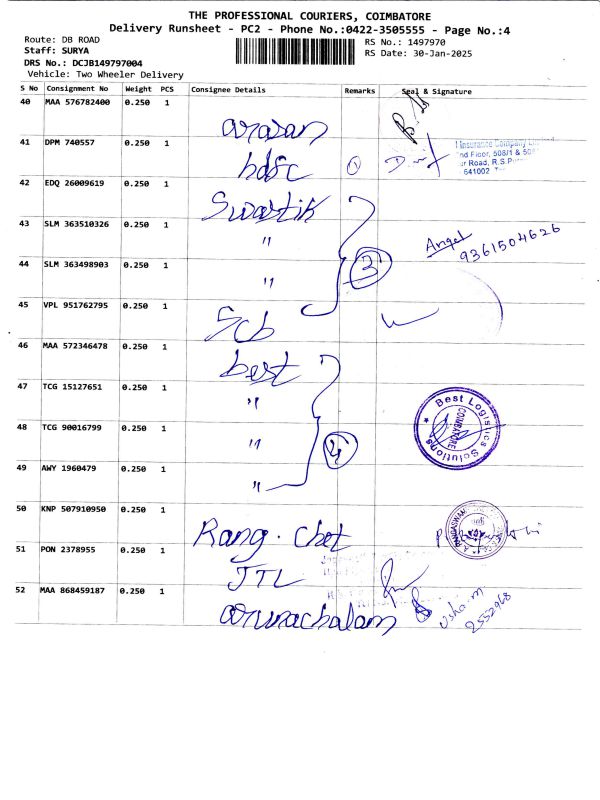 THE PROFESSIONAL COURIERS, COIMBATORE
Delivery Runsheet - PC2 - Phone No.:0422-3505555 - Page No.:4
Route: DB ROAD
RS No.: 1497970
Staff: SURYA
RS Date: 30-Jan-2025
DRS No.: DCJB149797004
Vehicle: Two Wheeler Delivery
S No Consignment No Weight PCS Consignee Details Remarks Seal & Signature
40 MAA 576782400 0.250 1 arasan
41 DPM 740557 0.250 1 hdfc 1
Insurance Company
nd Floor, 508/1 & 50
ur Road, R.S.Pu
641002
42 EDQ 26009619 0.250 1 Swastik
43 SLM 363510326 0.250 1 "
3
Angel
9361504626
44 SLM 363498903 0.250 1 "
45 VPL 951762795 0.250 1 Scb
46 MAA 572346478 0.250 1 best
47 TCG 15127651 0.250 1 "
48 TCG 90016799 0.250 1 "
4
Best Logistics Solutions
COIMBATORE
49 AWY 1960479 0.250 1 "
50 KNP 507910950 0.250 1 Rang. Chet
51 PON 2378955 0.250 1 JTL
52 MAA 868459187 0.250 1 arunachalam
Usha.M
2552968